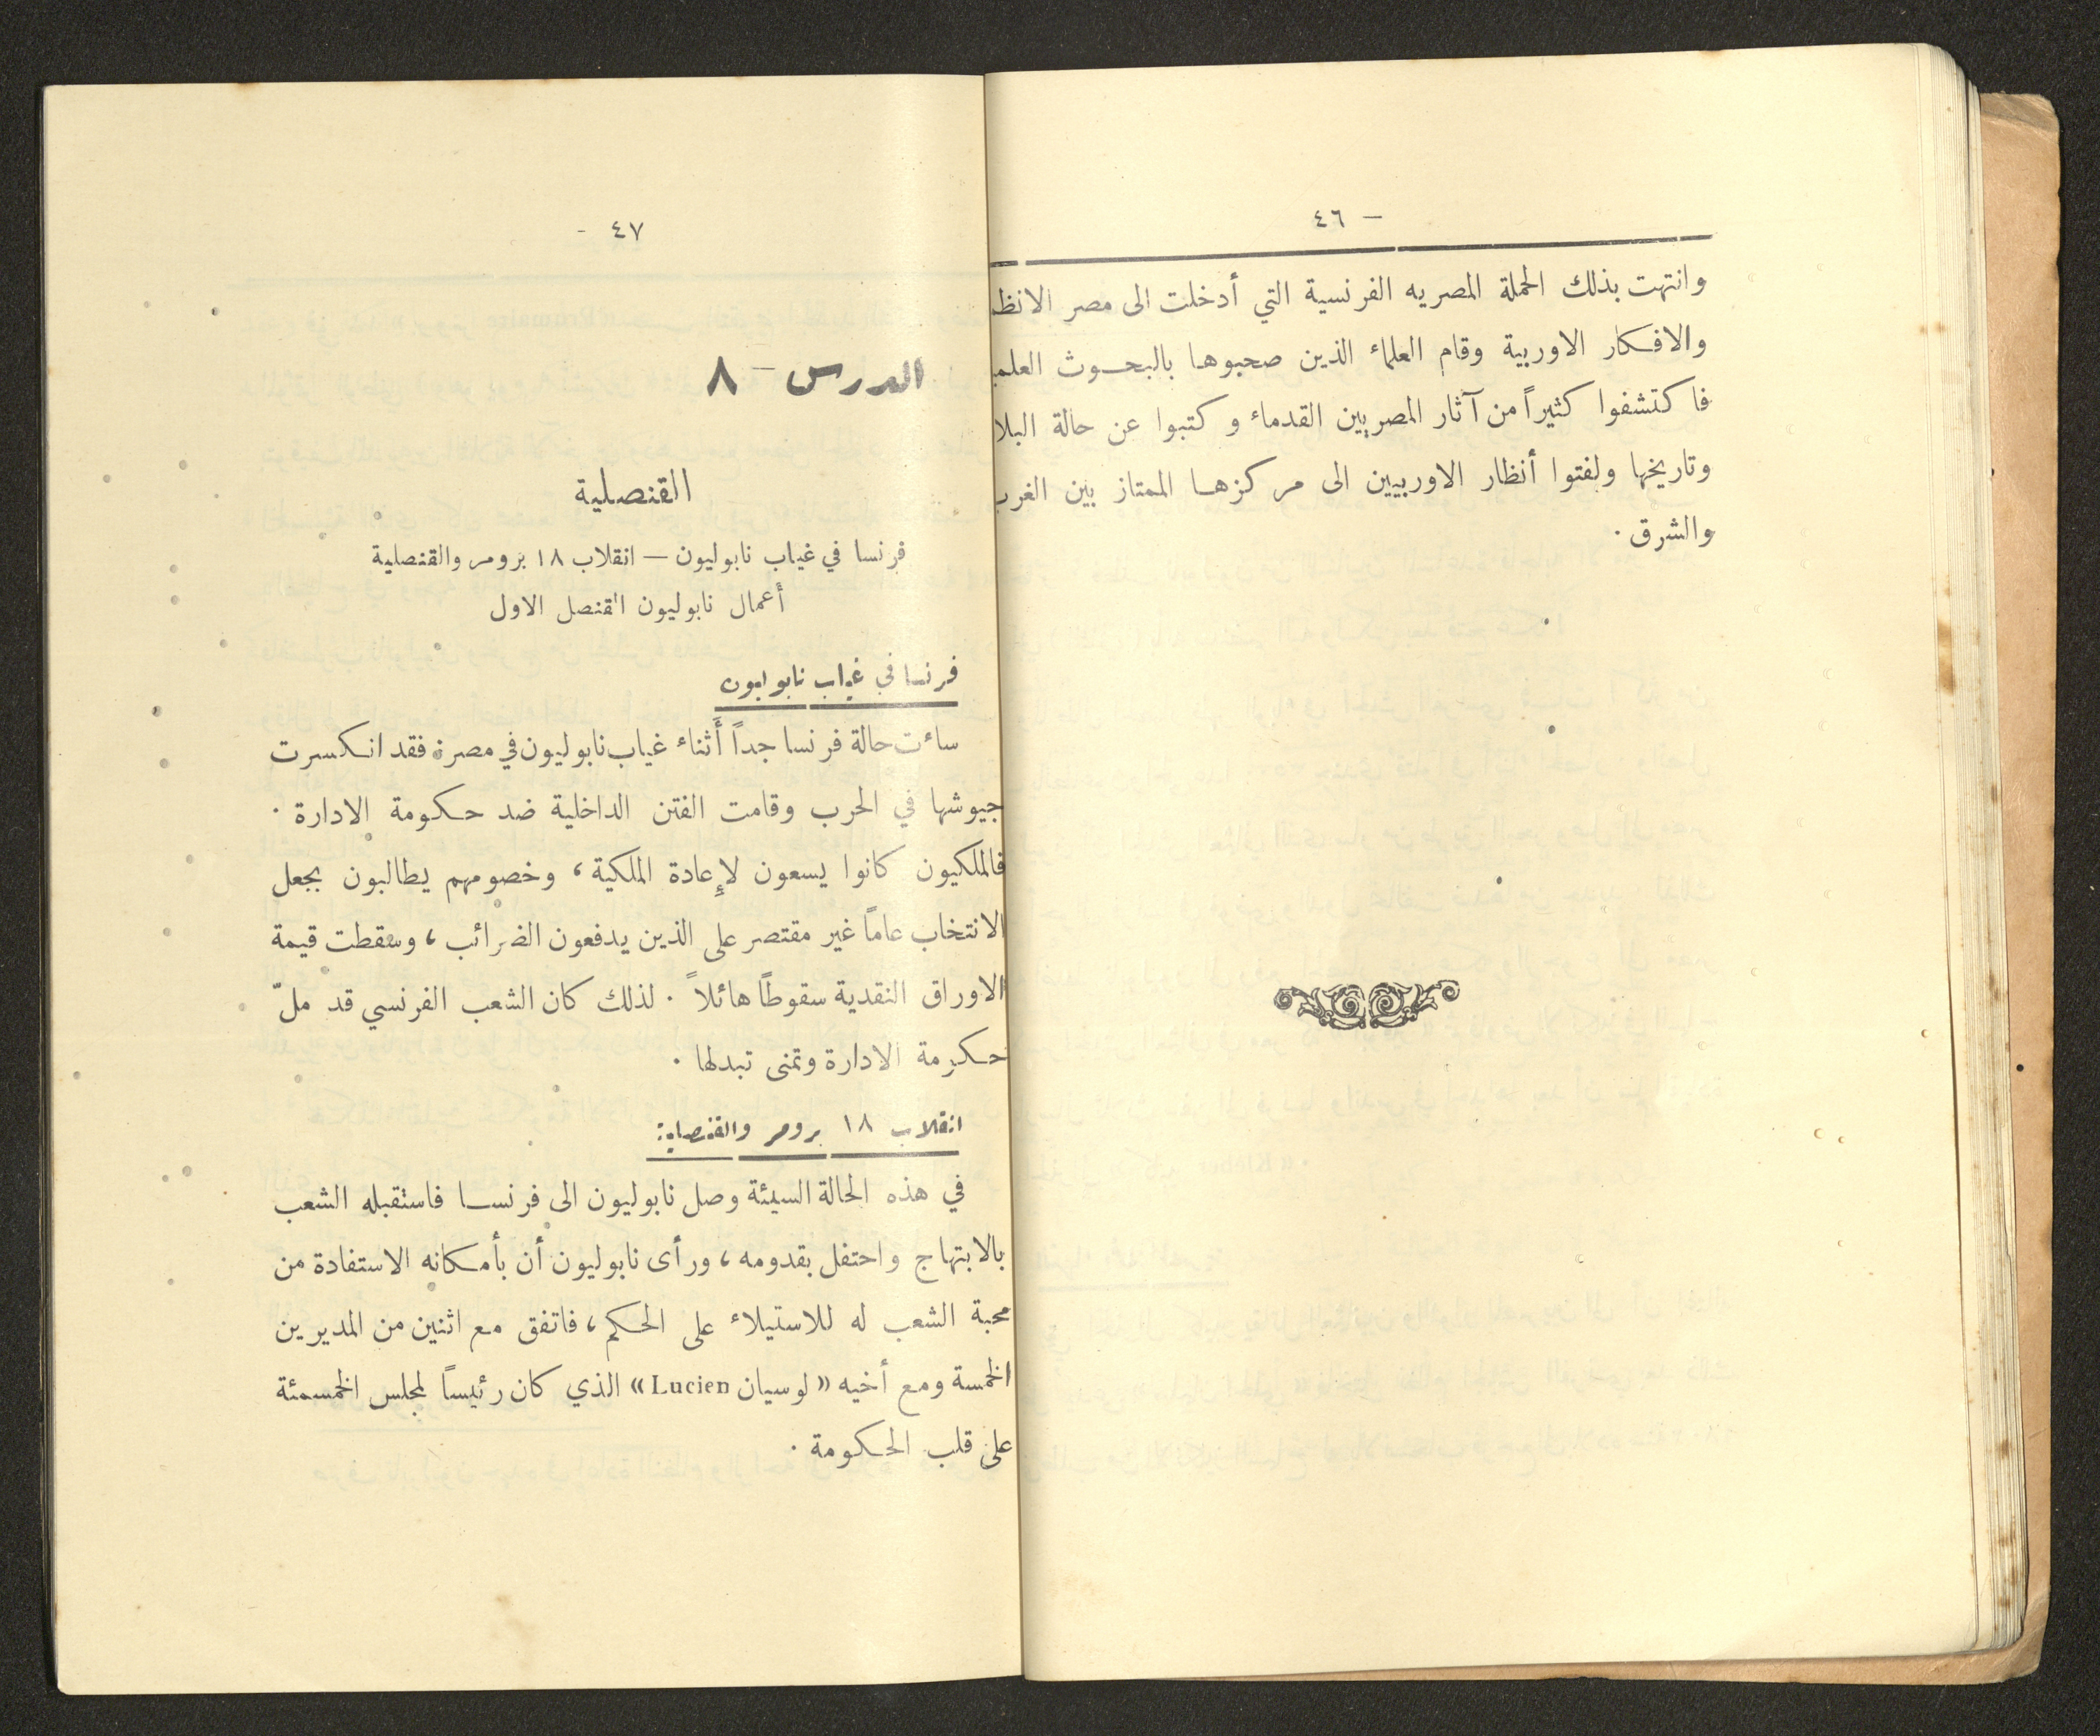 — ٤٦
وانتهت بذلك الحملة المصريه الفرنسية التي أدخلت الى مصر الانظ
والافكار الاوربية وقام العلماء الذين صحبوها بالبحوث العلم
فاكتشفوا كثيراً من آثار المصريين القدماء وكتبوا عن حالة البلا
وتاريخها ولفتوا أنظار الاوربيين الى مركزها الممتاز بين الغرب
والشرق .
٤٧ -
الدرس – ٨
القنصلية
فرنسا في غياب نابوليون — انقلاب ١٨ برومر والقنصلية
أعمال نابوليون القنصل الاول
فرنسا في غياب نابوليون
ساءت حالة فرنسا جداً أثناء غياب نابوليون في مصر، فقد انكسرت
جيوشها في الحرب وقامت الفتن الداخلية ضد حكومة الادارة .
فالملكيون كانوا يسعون لإعادة الملكية، وخصومهم يطالبون بجعل
الانتخاب عاماً غير مقتصر على الذين يدفعون الضرائب، وسقطت قيمة
الاوراق النقدية سقوطاً هائلاً . لذلك كان الشعب الفرنسي قد ملّ
حكومة الادارة وتمنى تبدلها .
انقلاب ١٨ برومر والقنصلية:
في هذه الحالة السيئة وصل نابوليون الى فرنسا فاستقبله الشعب
بالابتهاج واحتفل بقدومه، ورأى نابوليون أن بأمكانه الاستفادة من
محبة الشعب له للاستيلاء على الحكم، فاتفق مع اثنين من المديرين
الخمسة ومع أخيه «لوسيان Lucien» الذي كان رئيساً لمجلس الخمسمئة
على قلب الحكومة .